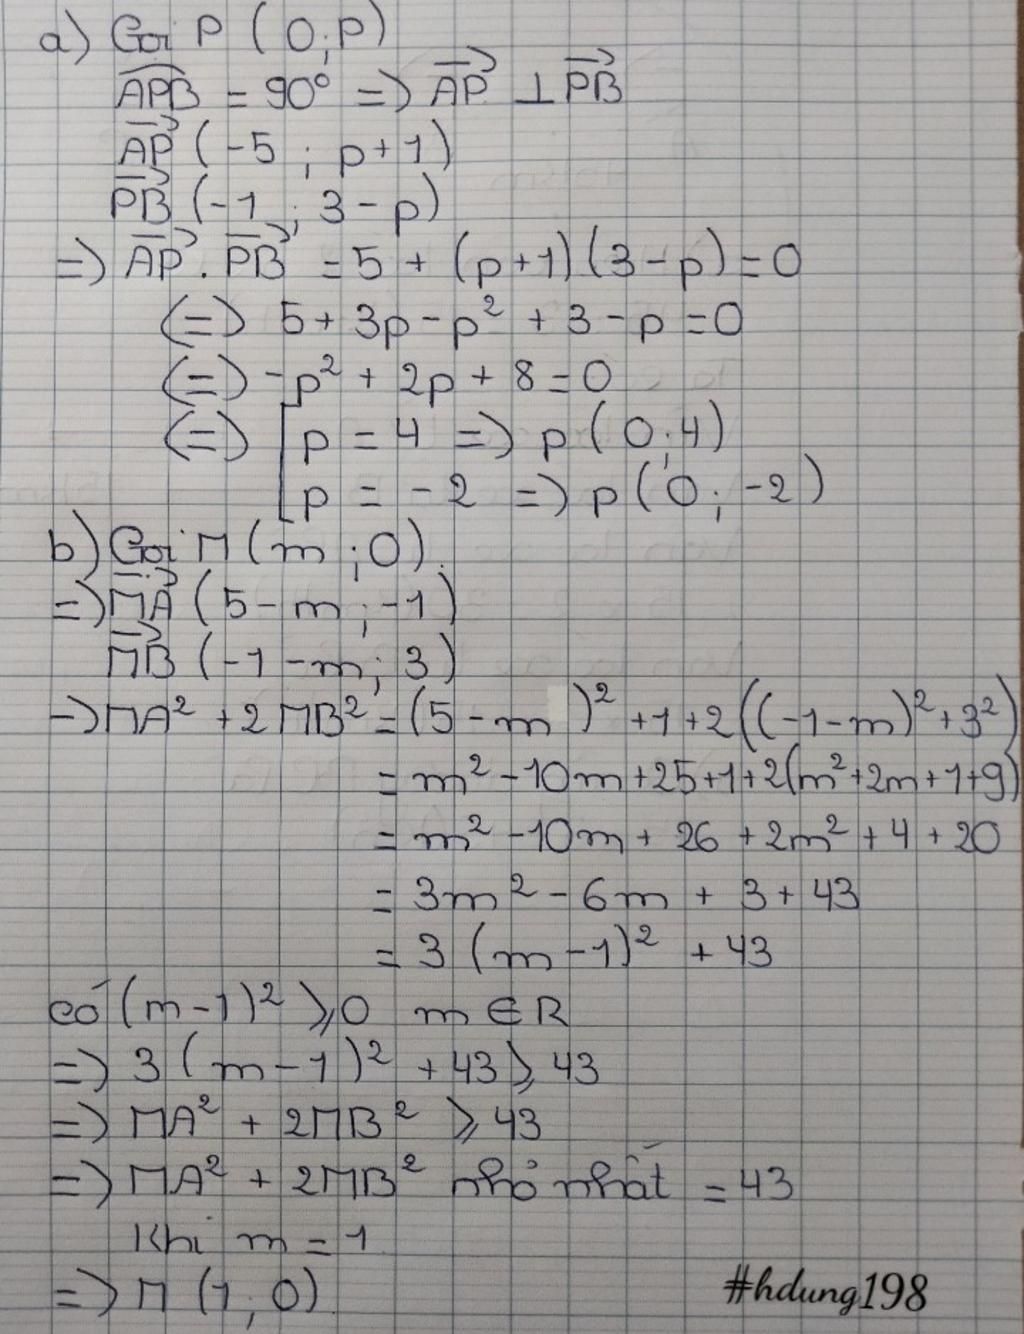 a) Gọi P ( 0 ; p )
APB = 90° => AP ⊥ PB
AP ( -5 ; p+1 )
PB ( -1 ; 3 - p )
=> AP . PB = 5 + (p+1)(3-p) = 0
<=> 5 + 3p - p² + 3 - p = 0
<=> -p² + 2p + 8 = 0
<=> [ p = 4 => p ( 0 ; 4 )
p = -2 => p ( 0 ; -2 )
b) Gọi M ( m ; 0 ).
=> MA ( 5 - m ; -1 )
MB ( -1 - m ; 3 )
-> MA² + 2MB² = (5 - m )² + 1 + 2((-1-m)² + 3²)
= m² - 10m + 25 + 1 + 2(m² + 2m + 1 + 9)
= m² - 10m + 26 + 2m² + 4 + 20
= 3m² - 6m + 3 + 43
= 3 (m - 1)² + 43
có (m - 1)² ⩾ 0 m ∈ R
=> 3 ( m - 1 )² + 43 ⩾ 43
=> MA² + 2MB² ⩾ 43
=> MA² + 2MB² nhỏ nhất = 43
Khi m = 1
=> M (1 ; 0)
#hdung198